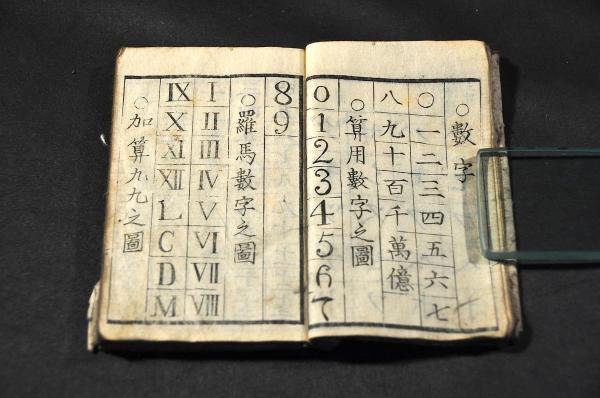 ○數字
○一二三四五六七
八九十百千萬億
○算用數字之圖
0 1 2 3 4 5 6 7
8 9
○羅馬數字之圖
I II III IV V VI VII VIII
IX X XI XII L C D M
○加算九九之圖